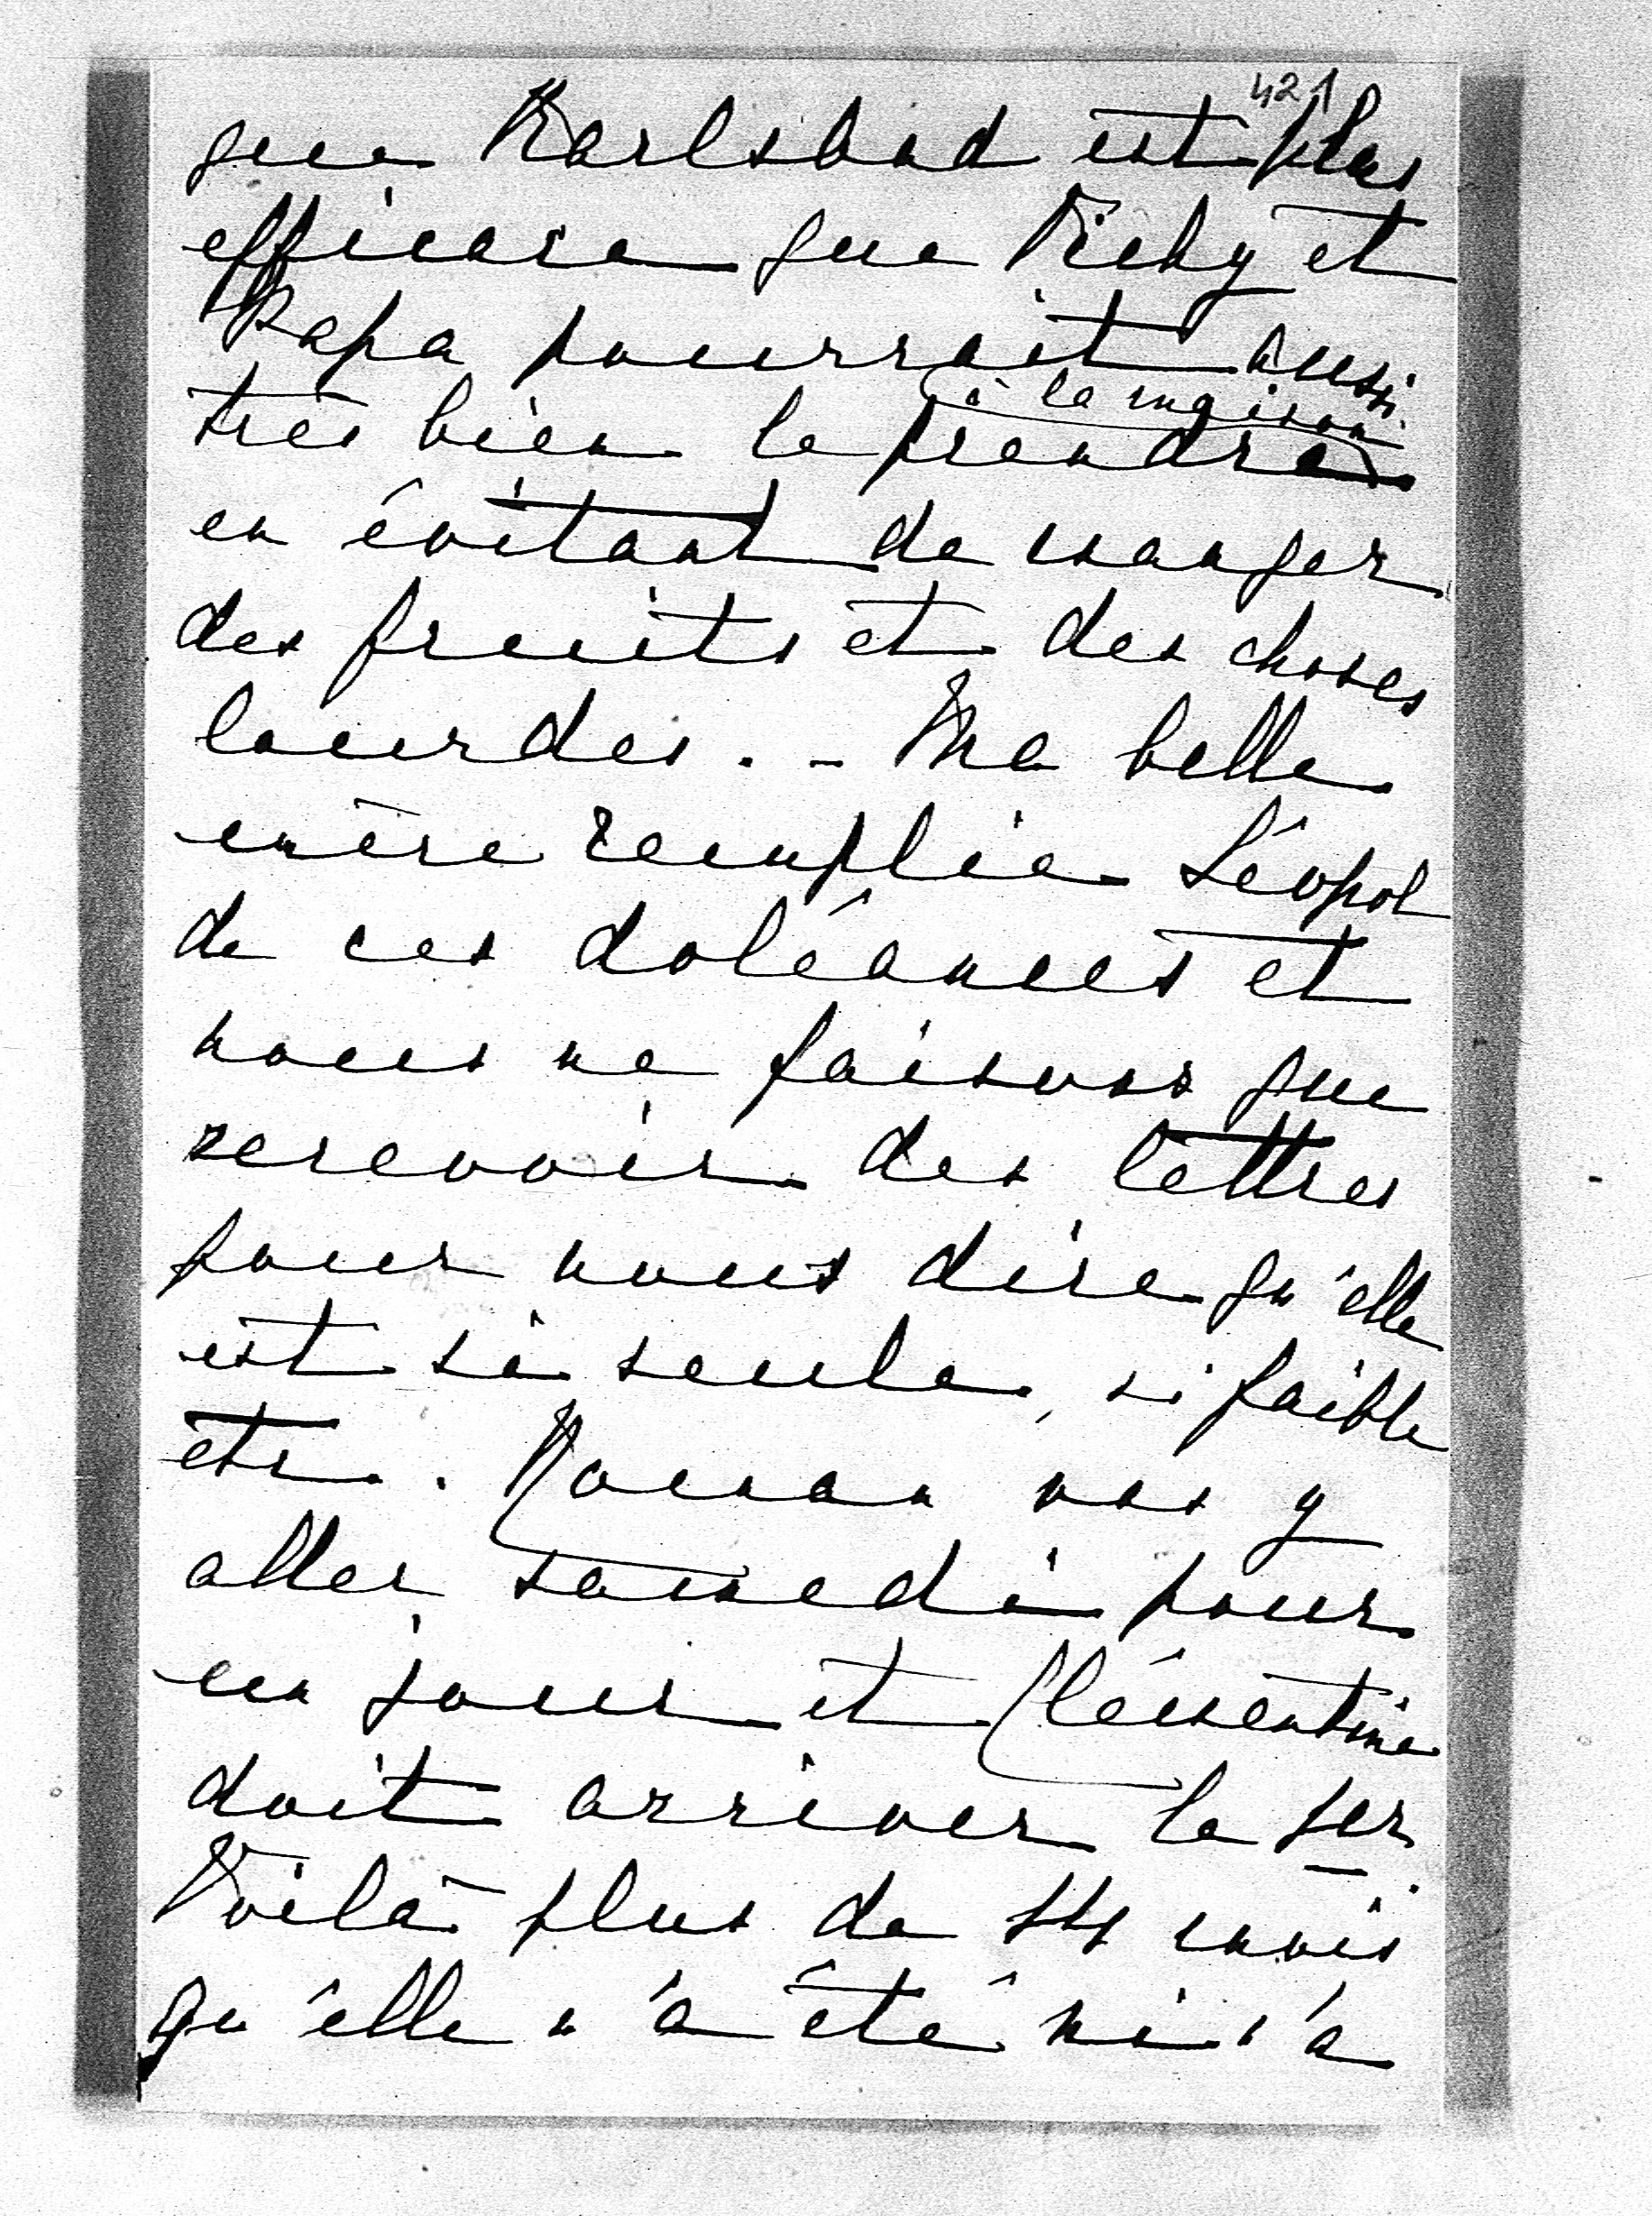 421
que Karlsbad est plus
efficace que Vichy et
Papa pourrait aussi
à la maison
très bien le prendre
en évitant de manger
des fruits et des choses
lourdes. - Ma belle
mère remplie Léopol
de ces doléances et
nous ne faisons que
recevoir des lettres
pour nous dire qu'elle
est si seule, si faible
etc. Roman vas y
aller samedi pour
un jour et Clémentine
doit arriver le 1er.
Voilà plus de 14 mois
qu'elle n'a été ni n'a